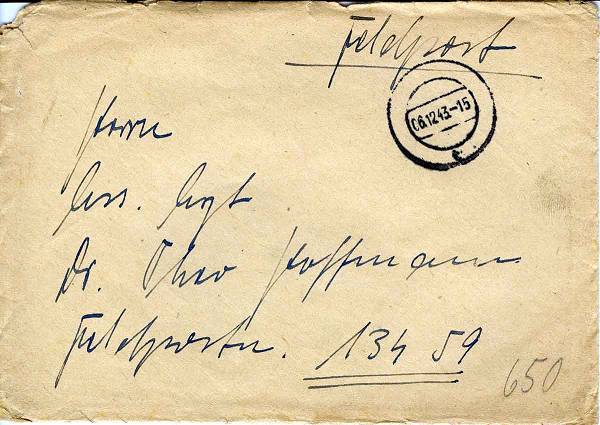 Feldpost
06.12.43.-15
c
Herrn
Ass. Arzt
Dr. Theo Hoffmann
Feldpostn. 134 59
650